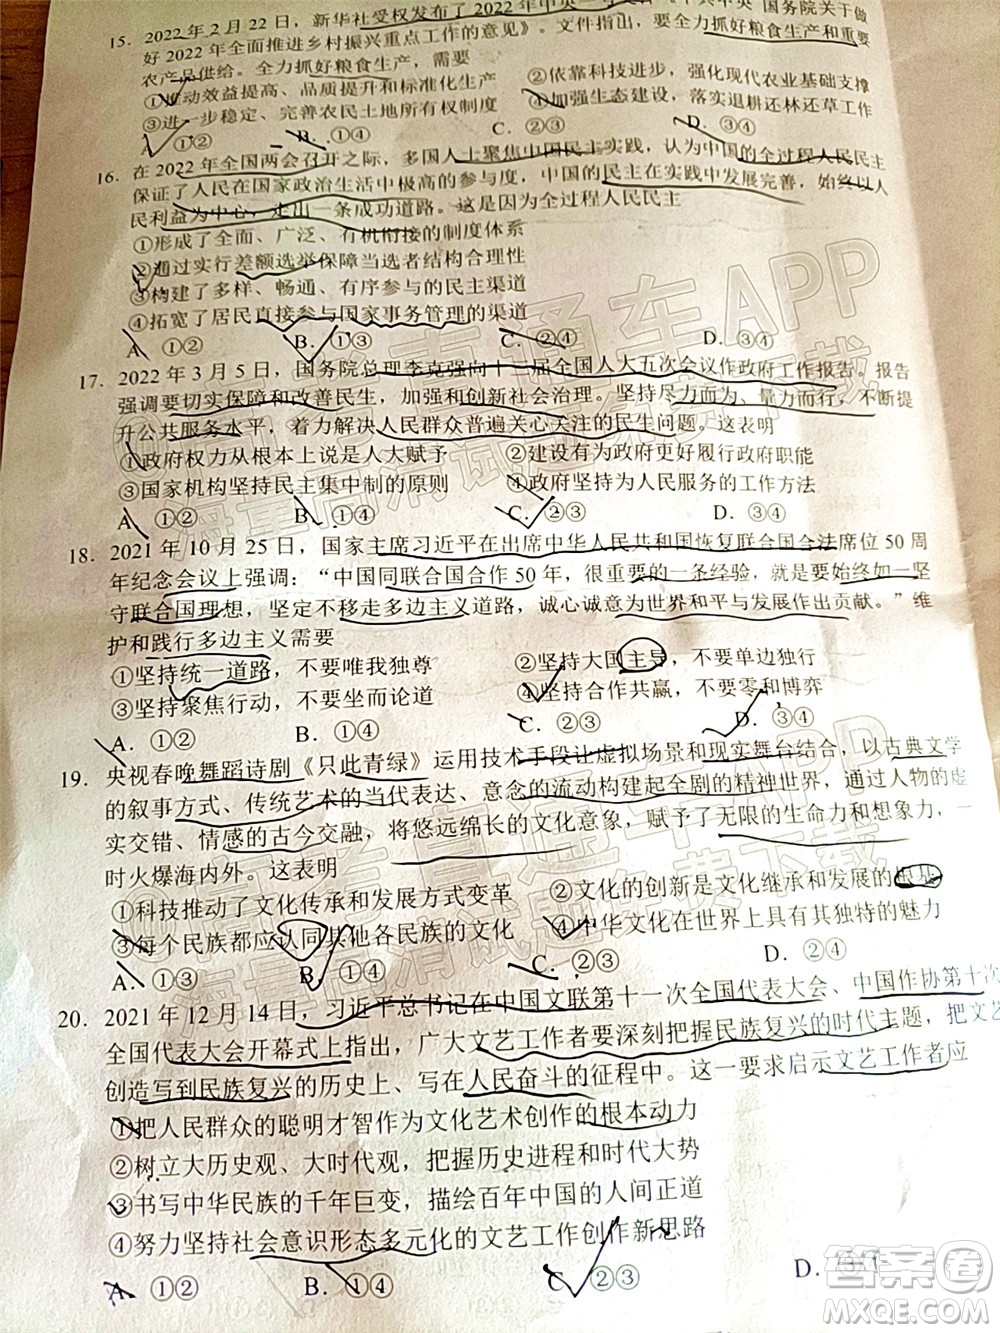 15. 2022 年 2 月 22 日，新华社受权发布了 2022 年中央一号 国务院关于做
好 2022 年全面推进乡村振兴重点工作的意见》。文件指出，要全力抓好粮食生产和重要
农产品供给。全力抓好粮食生产，需要
①推动效益提高、品质提升和标准化生产 ②依靠科技进步，强化现代农业基础支撑
③进一步稳定、完善农民土地所有权制度 ④加强生态建设，落实退耕还林还草工作
A. ①② B. ①④ C. ②③ D. ③④
16. 在 2022 年全国两会召开之际，多国人士聚焦中国民主实践，认为中国的全过程人民民主
保证了人民在国家政治生活中极高的参与度，中国的民主在实践中发展完善，始终以人
民利益为中心，走出一条成功道路。这是因为全过程人民民主
①形成了全面、广泛、有机衔接的制度体系
②通过实行差额选举保障当选者结构合理性
③构建了多样、畅通、有序参与的民主渠道
④拓宽了居民直接参与国家事务管理的渠道
A. ①② B. ①③ C. ②④ D. ③④
17. 2022 年 3 月 5 日，国务院总理李克强向十三届全国人大五次会议作政府工作报告。报告
强调要切实保障和改善民生，加强和创新社会治理。坚持尽力而为、量力而行，不断提
升公共服务水平，着力解决人民群众普遍关心关注的民生问题。这表明
①政府权力从根本上是人大赋予 ②建设有为政府更好履行政府职能
③国家机构坚持民主集中制的原则 ④政府坚持为人民服务的工作方法
A. ①② B. ①③ C. ②④ D. ③④
18. 2021 年 10 月 25 日，国家主席习近平在出席中华人民共和国恢复联合国合法席位 50 周
年纪念会议上强调：“中国同联合国合作 50 年，很重要的一条经验，就是要始终如一坚
守联合国理想，坚定不移走多边主义道路，诚心诚意为世界和平与发展作出贡献。”维
护和践行多边主义需要
①坚持统一道路，不要唯我独尊 ②坚持大国主导，不要单边独行
③坚持聚焦行动，不要坐而论道 ④坚持合作共赢，不要零和博弈
A. ①② B. ①④ C. ②③ D. ③④
19. 央视春晚舞蹈诗剧《只此青绿》运用技术手段让虚拟场景和现实舞台结合，以古典文学
的叙事方式、传统艺术的当代表达、意念的流动构建起全剧的精神世界，通过人物的虚
实交错、情感的古今交融，将悠远绵长的文化意象，赋予了无限的生命力和想象力，一
时火爆海内外。这表明
①科技推动了文化传承和发展方式变革 ②文化的创新是文化继承和发展的根基
③每个民族都应认同其他各民族的文化 ④中华文化在世界上享有其独特的魅力
A. ①③ B. ①④ C. ②③ D. ②④
20. 2021 年 12 月 14 日，习近平总书记在中国文联第十一次全国代表大会、中国作协第十次
全国代表大会开幕式上指出，广大文艺工作者要深刻把握民族复兴的时代主题，把文艺
创造写到民族复兴的历史上、写在人民奋斗的征程中。这一要求启示文艺工作者应
①把人民群众的聪明才智作为文化艺术创作的根本动力
②树立大历史观、大时代观，把握历史进程和时代大势
③书写中华民族的千年巨变，描绘百年中国的人间正道
④努力坚持社会意识形态多元化的文艺工作创作新思路
A. ①② B. ①④ C. ②③ D.
答案圈
MXQE.COM